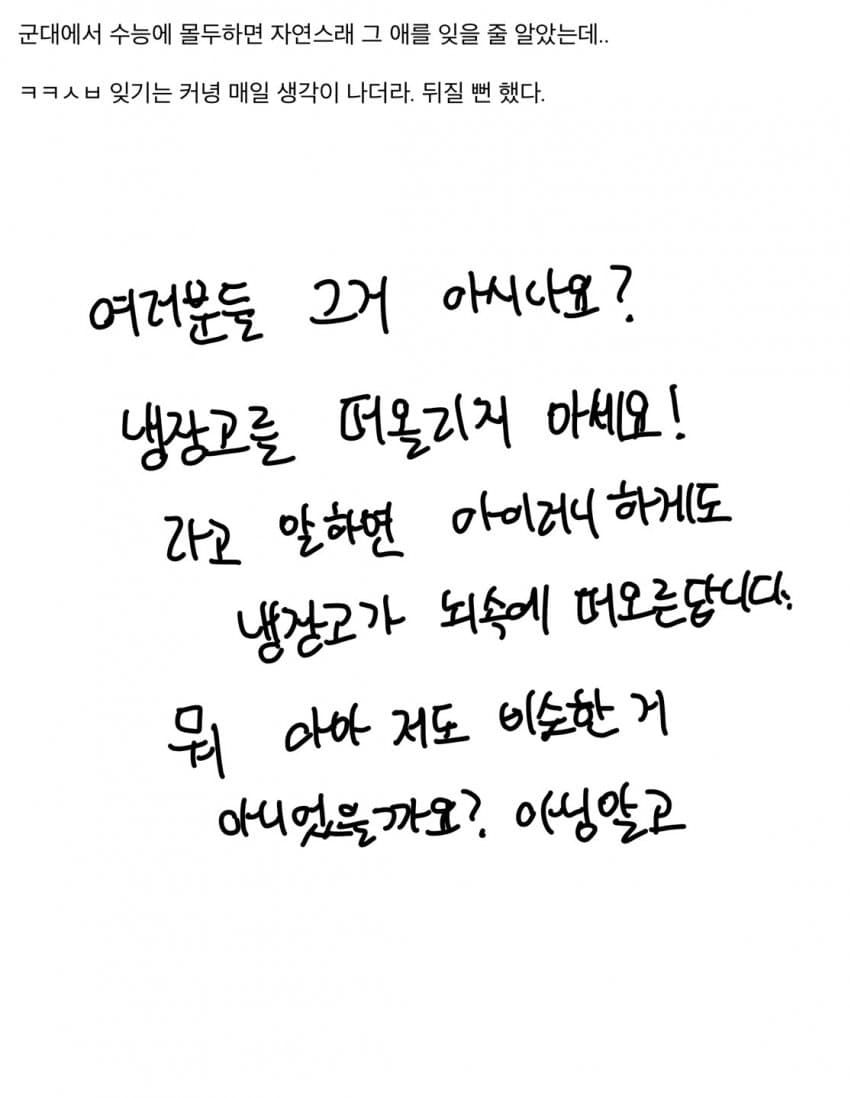 군대에서 수능에 몰두하면 자연스래 그 애를 잊을 줄 알았는데..
ㅋㅋㅅㅂ 잊기는 커녕 매일 생각이 나더라. 뒤질 뻔 했다.
여러분들 그거 아시나요?
냉장고를 떠올리지 마세요!
라고 말하면 아이러니하게도
냉장고가 뇌속에 떠오른답니다.
뭐 아마 저도 비슷한 거
아니었을까요? 아님말고